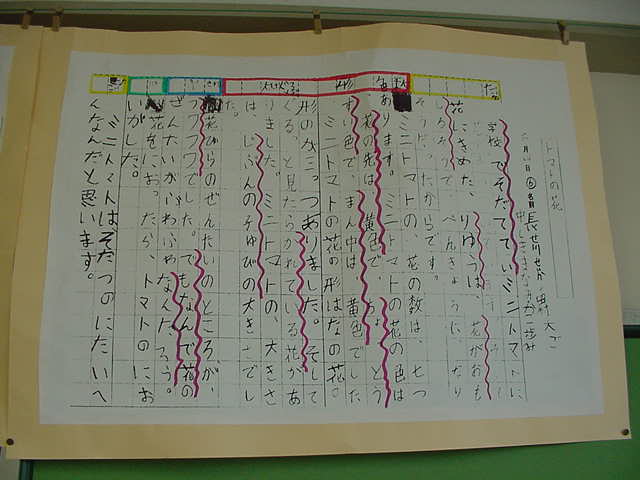 トマトの花
学校でそだてているミニトマトに
花にきめた、りゆうは、花がおも
しろそうで、べんきょうに、なり
そうだったからです。
ミニトマトの、花の数は、七つ
あります。ミニトマトの花の色は
、花の先は黄色で、ちょとう
すい色で、まん中は黄色でした
ミニトマトの花の形はなの花。
形のが三つありました。そして
くると見たらかれている花があ
りました。ミニトマトの、大きさ
は じぶんの子ゆびの大きさでし
た。
花びらのぜんたいのところが、
フワフワでした。でもなんで花の
ぜんたいがふわふわなんだろう。
花をにおったら、トマトのにお
いがした。
ミニトマトは、そだつのにたいへ
んなんだと思います。